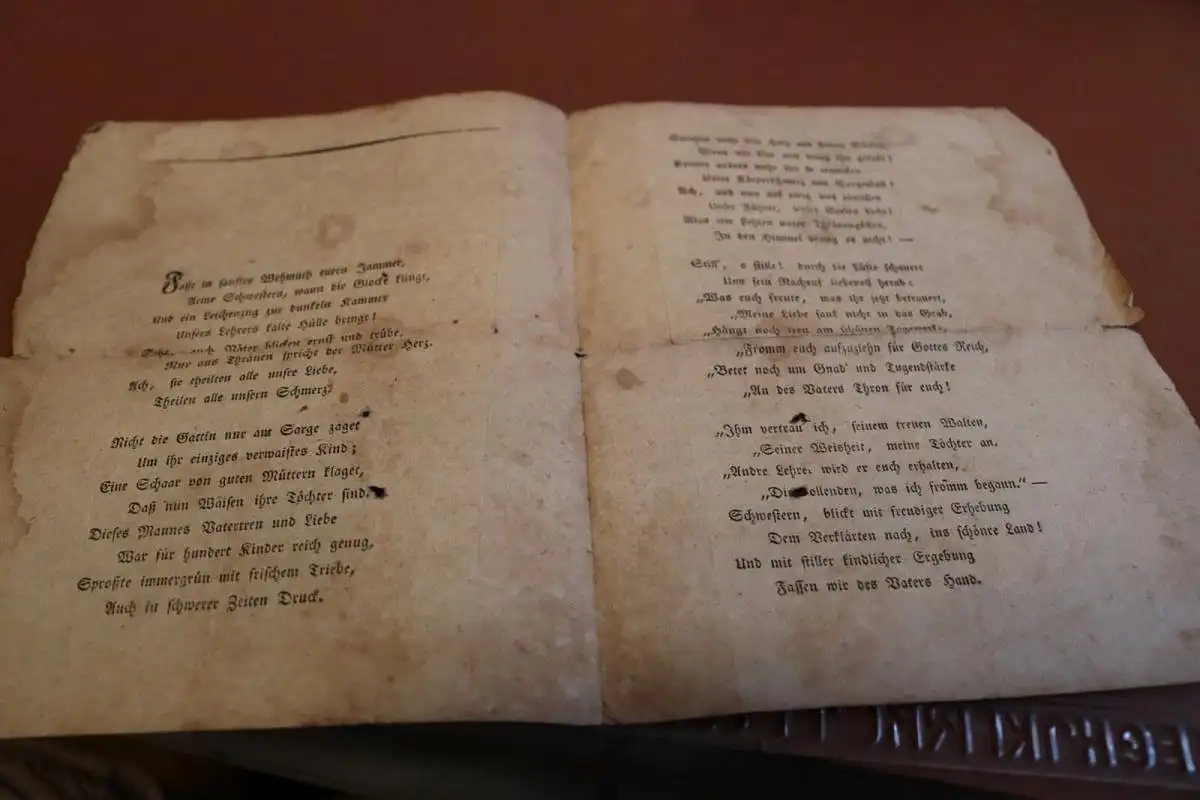 Faßt in sanfter Wehmuth euern Jammer,
Arme Schwestern, wann die Glocke klingt,
Und ein Leichenzug zur dunkeln Kammer
Unsers Lehrers kalte Hülle bringt!
Väter blicken ernst und trübe,
Nur aus Thränen spricht der Mütter Herz.
Ach, sie theilten alle unsre Liebe,
Theilen alle unsern Schmerz!
Nicht die Gattin nur am Sarge zaget
Um ihr einziges verwaistes Kind;
Eine Schaar von guten Müttern klaget,
Daß nun Waisen ihre Töchter sind.
Dieses Mannes Vatertreu und Liebe
War für hundert Kinder reich genug,
Sproßte immergrün mit frischem Triebe,
Auch in schwerer Zeiten Druck.
mehr sein Herz von
Wenn wir ihn
Konnte anders mehr ihn
Unter Körperschmerz
Ach, und nun auf ewig uns
Lieber Führer,
Was am
In den Himmel drang es nicht! —
Still', o stille! durch die Lüfte schauert
Uns sein Nachruf liebevoll herab:
„Was euch freute, was ihr jetzt betrauert,
„Meine Liebe sank nicht in das Grab,
„Hängt noch treu am schönen Tagewerke,
„Fromm euch aufzuziehn für Gottes Reich,
„Betet noch um Gnad' und Tugendstärke
„An des Vaters Thron für euch!
„Ihm vertrau' ich, seinem treuen Walten,
„Seiner Weisheit, meine Töchter an.
„Andre Lehrer wird er euch erhalten,
„Die vollenden, was ich fromm begann.“ —
Schwestern, blickt mit freudiger Erhebung
Dem Verklärten nach, ins schönre Land!
Und mit stiller kindlicher Ergebung
Fassen wir des Vaters Hand.